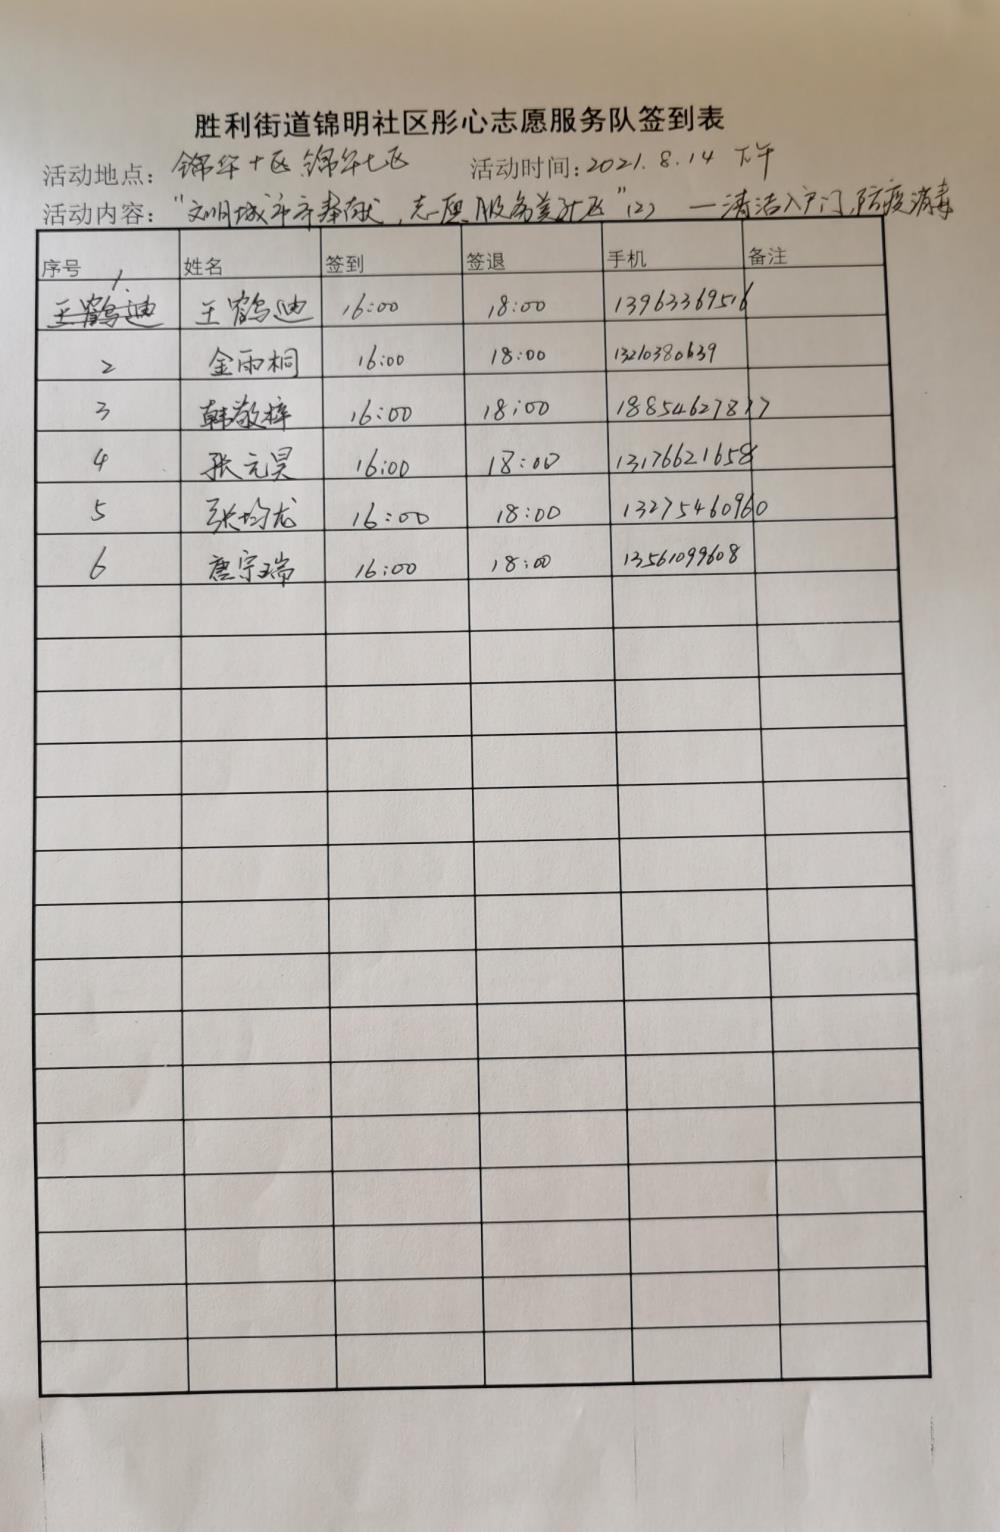 胜利街道锦明社区彤心志愿服务队签到表
活动地点：锦华十区 锦华七区 活动时间：2021.8.14 下午
活动内容：“文明城市齐奉献，志愿服务美社区”（2）—清洁入户门，防疫消毒
序号 姓名 签到 签退 手机 备注
1.
王鹤迪 王鹤迪 16:00 18:00 13963369516
2 金雨桐 16:00 18:00 13210380639
3 韩敬梓 16:00 18:00 18854627877
4 张元昊 16:00 18:00 13176621658
5 张均龙 16:00 18:00 13275460960
6 唐宗瑞 16:00 18:00 13561099608